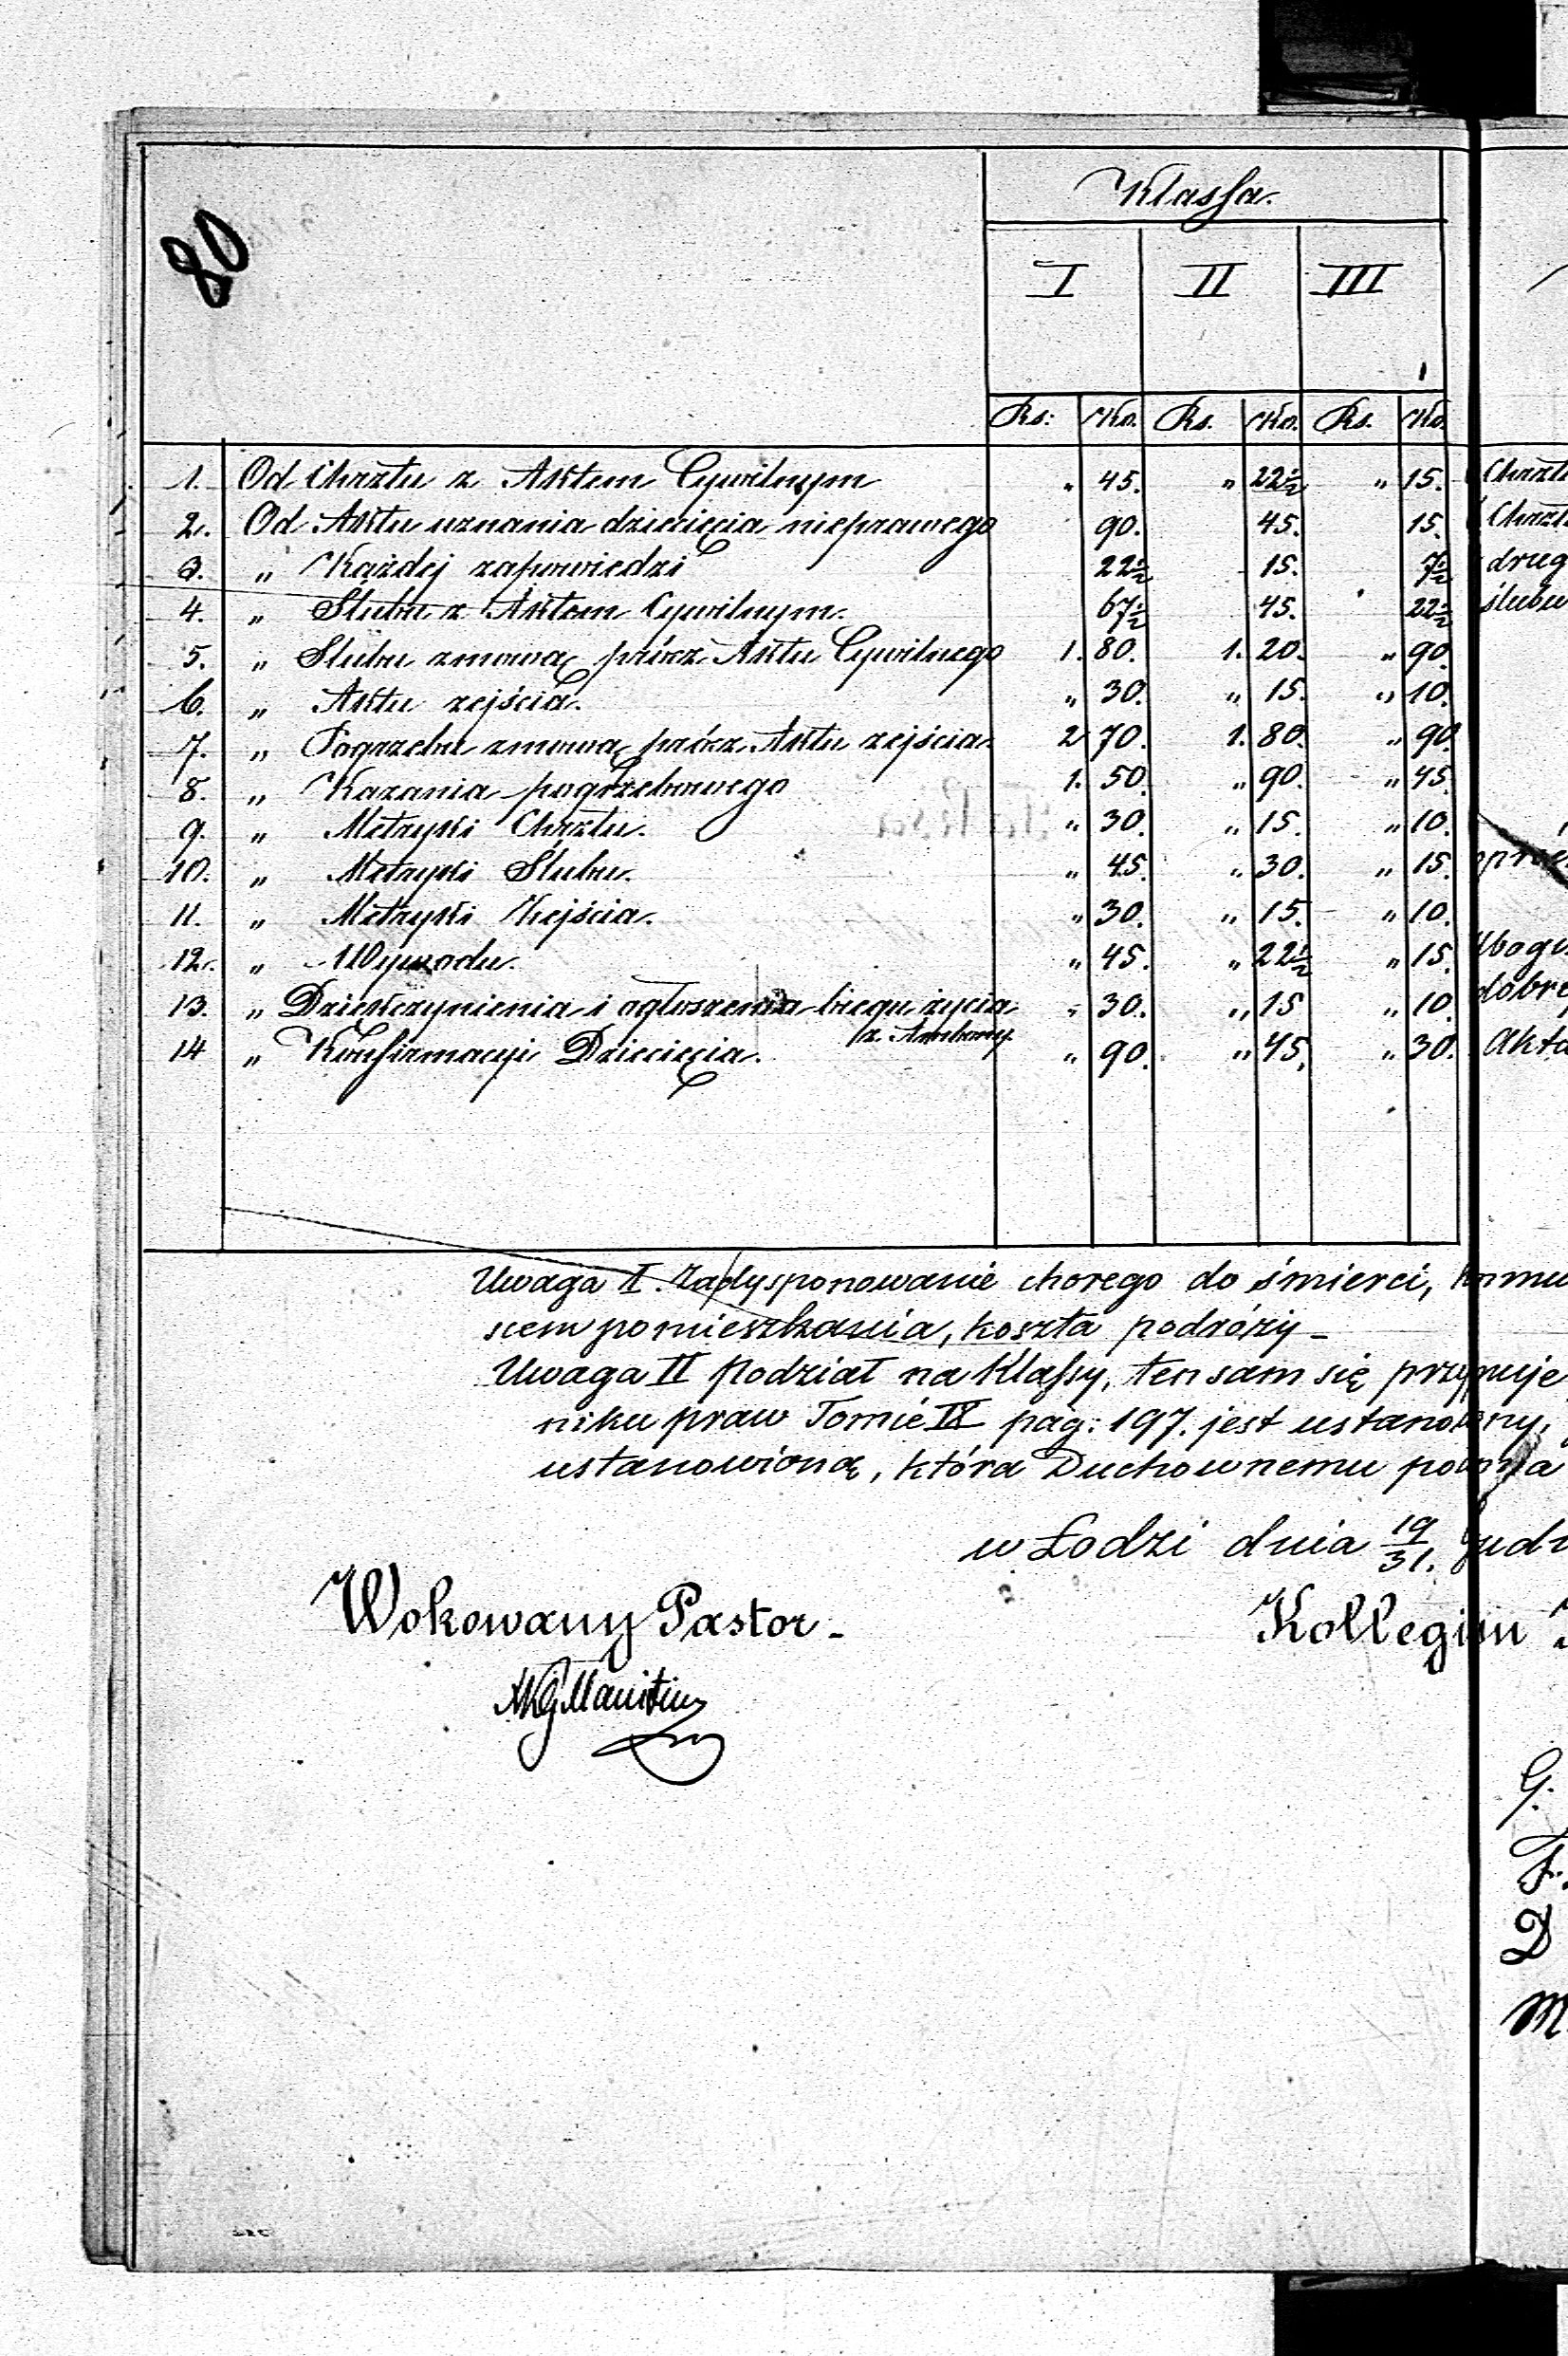 80
Klassa.
I II III
Rs: Ko. Rs. Ko. Rs. Ko.
1. Od Chrztu z Aktem Cywilnym " 45. " 22½ " 15.
2. Od Aktu uznania dziecięcia nieprawego 90. 45. 15.
3. " Każdej zapowiedzi 22½ 15. 7½
4. " Slubu z Aktem Cywilnym. 67½ 45. 22½
5. " Slubu zmową prócz Aktu Cywilnego 1. 80. 1. 20. " 90.
6. " Aktu zejścia. " 30. " 15. " 10.
7. " Pogrzebu zmową prócz Aktu zejścia. 2 70. 1. 80. " 90.
8. " Kazania pogrzebowego 1. 50. " 90. " 45.
9. " Metryki Chrztu. " 30. " 15. " 10.
10. " Metryki Ślubu. " 45. " 30. " 15.
11. " Metryki Zejścia. " 30. " 15. " 10.
12. " Wywodu. " 45. " 22½ " 15.
13. " Dziekczynienia i ogłoszenia biegu życia " 30. " 15 " 10.
z Ambony.
14 " Konfirmacyi Dziecięcia. " 90. " 45. " 30.
Chrztu
Chrzt
drug
ślubu
Ubogi
dobre
Akta
Uwaga I. Zadysponowanie chorego do śmierci, komu
niem pomieszkania, koszta podróży -
Uwaga II Podział na Klassy, ten sam się przyjmuje
niku praw Tomie IX pag: 197. jest ustanowiony,
ustanowioną, która Duchownemu
w Łodzi dnia 19/31. Grudn
Wokowany Pastor -
Kollegium
MKGManitius
G.
F.
D
M